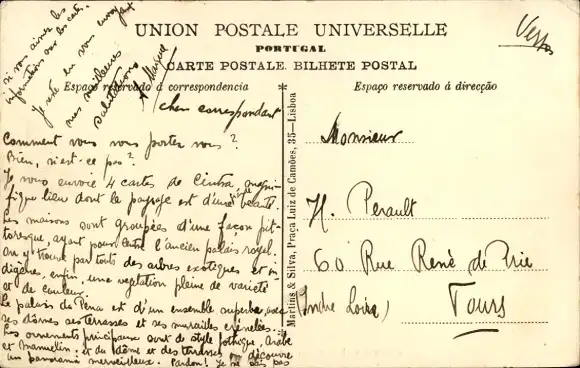 UNION POSTALE UNIVERSELLE
PORTUGAL
CARTE POSTALE. BILHETE POSTAL
Espaço reservado á correspondencia
Espaço reservado á direcção
Martins & Silva, Praça Luiz de Camões, 35—Lisboa
cher correspondant
Comment vous vous portez vous ?
Bien, n'est-ce pas ?
Je vous envoie 4 cartes de Cintra, magni-
fique lieu dont le paysage est d'une beauté.
Les maisons sont groupées d'une façon pit-
toresque, ayant pour centre l'ancien palais royal.
On y trouve partouts des arbres exotiques et in
digènes, enfin, une vegetation pleine de varieté
et de couleur.
Le palais da Pena est d'un ensemble superbe, avec
ses dômes ses terrasses et ses murailles crénelées.
Les ornements principaux sont de style gothique, Arabe
et Manuelin; et du dôme et des terrasses on découvre
un panorama merveilleux. Pardon! Je ne sais pas
si vous aimez les
informations sur les cartes.
Je suis en vous envoyant
mes meilleurs
salutations
Monsieur
H. Perault
60 Rue René de Prie
(Indre Loire)
Tours